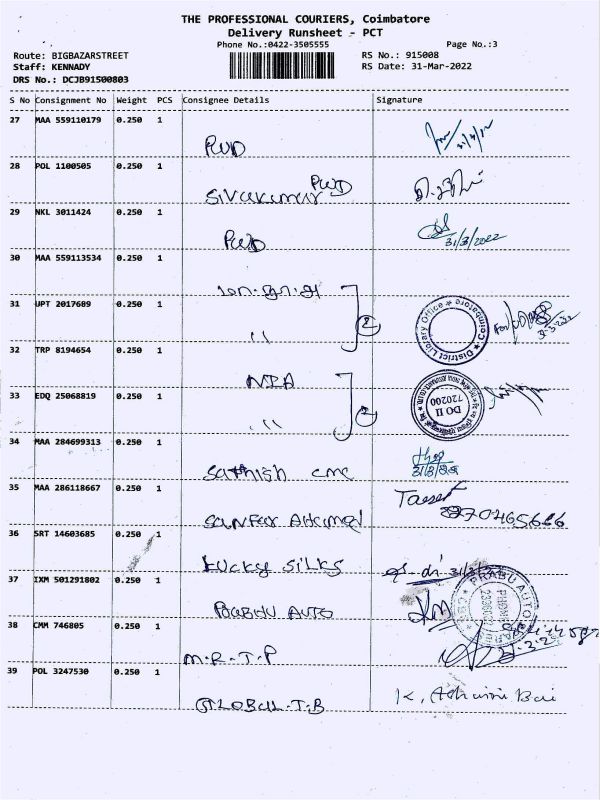 THE PROFESSIONAL COURIERS, Coimbatore
Delivery Runsheet - PCT
Phone No.:0422-3505555
Page No.:3
Route: BIGBAZARSTREET
Staff: KENNADY
DRS No.: DCJB91500803
RS No.: 915008
RS Date: 31-Mar-2022
S No Consignment No Weight PCS Consignee Details Signature
27 MAA 559110179 0.250 1
PWD
28 POL 1100505 0.250 1
Sivakumar PWD
29 NKL 3011424 0.250 1
PWD
31/3/2022
30 MAA 559113534 0.250 1
31 UPT 2017689 0.250 1
" 2
District Library Office * Coimbatore
32 TRP 8194654 0.250 1
NIA
33 EDQ 25068819 0.250 1
" 2
DO II
720200
34 MAA 284699313 0.250 1
Sathish cmc
35 MAA 286118667 0.250 1
36 SRT 14603685 0.250 1
Lucky Silks
37 IXM 501291802 0.250 1
Prabhu AUTO
PRABU AUTO
38 CMM 746805 0.250 1
M.R.T.P
39 POL 3247530 0.250 1
GLOBAL.T.B